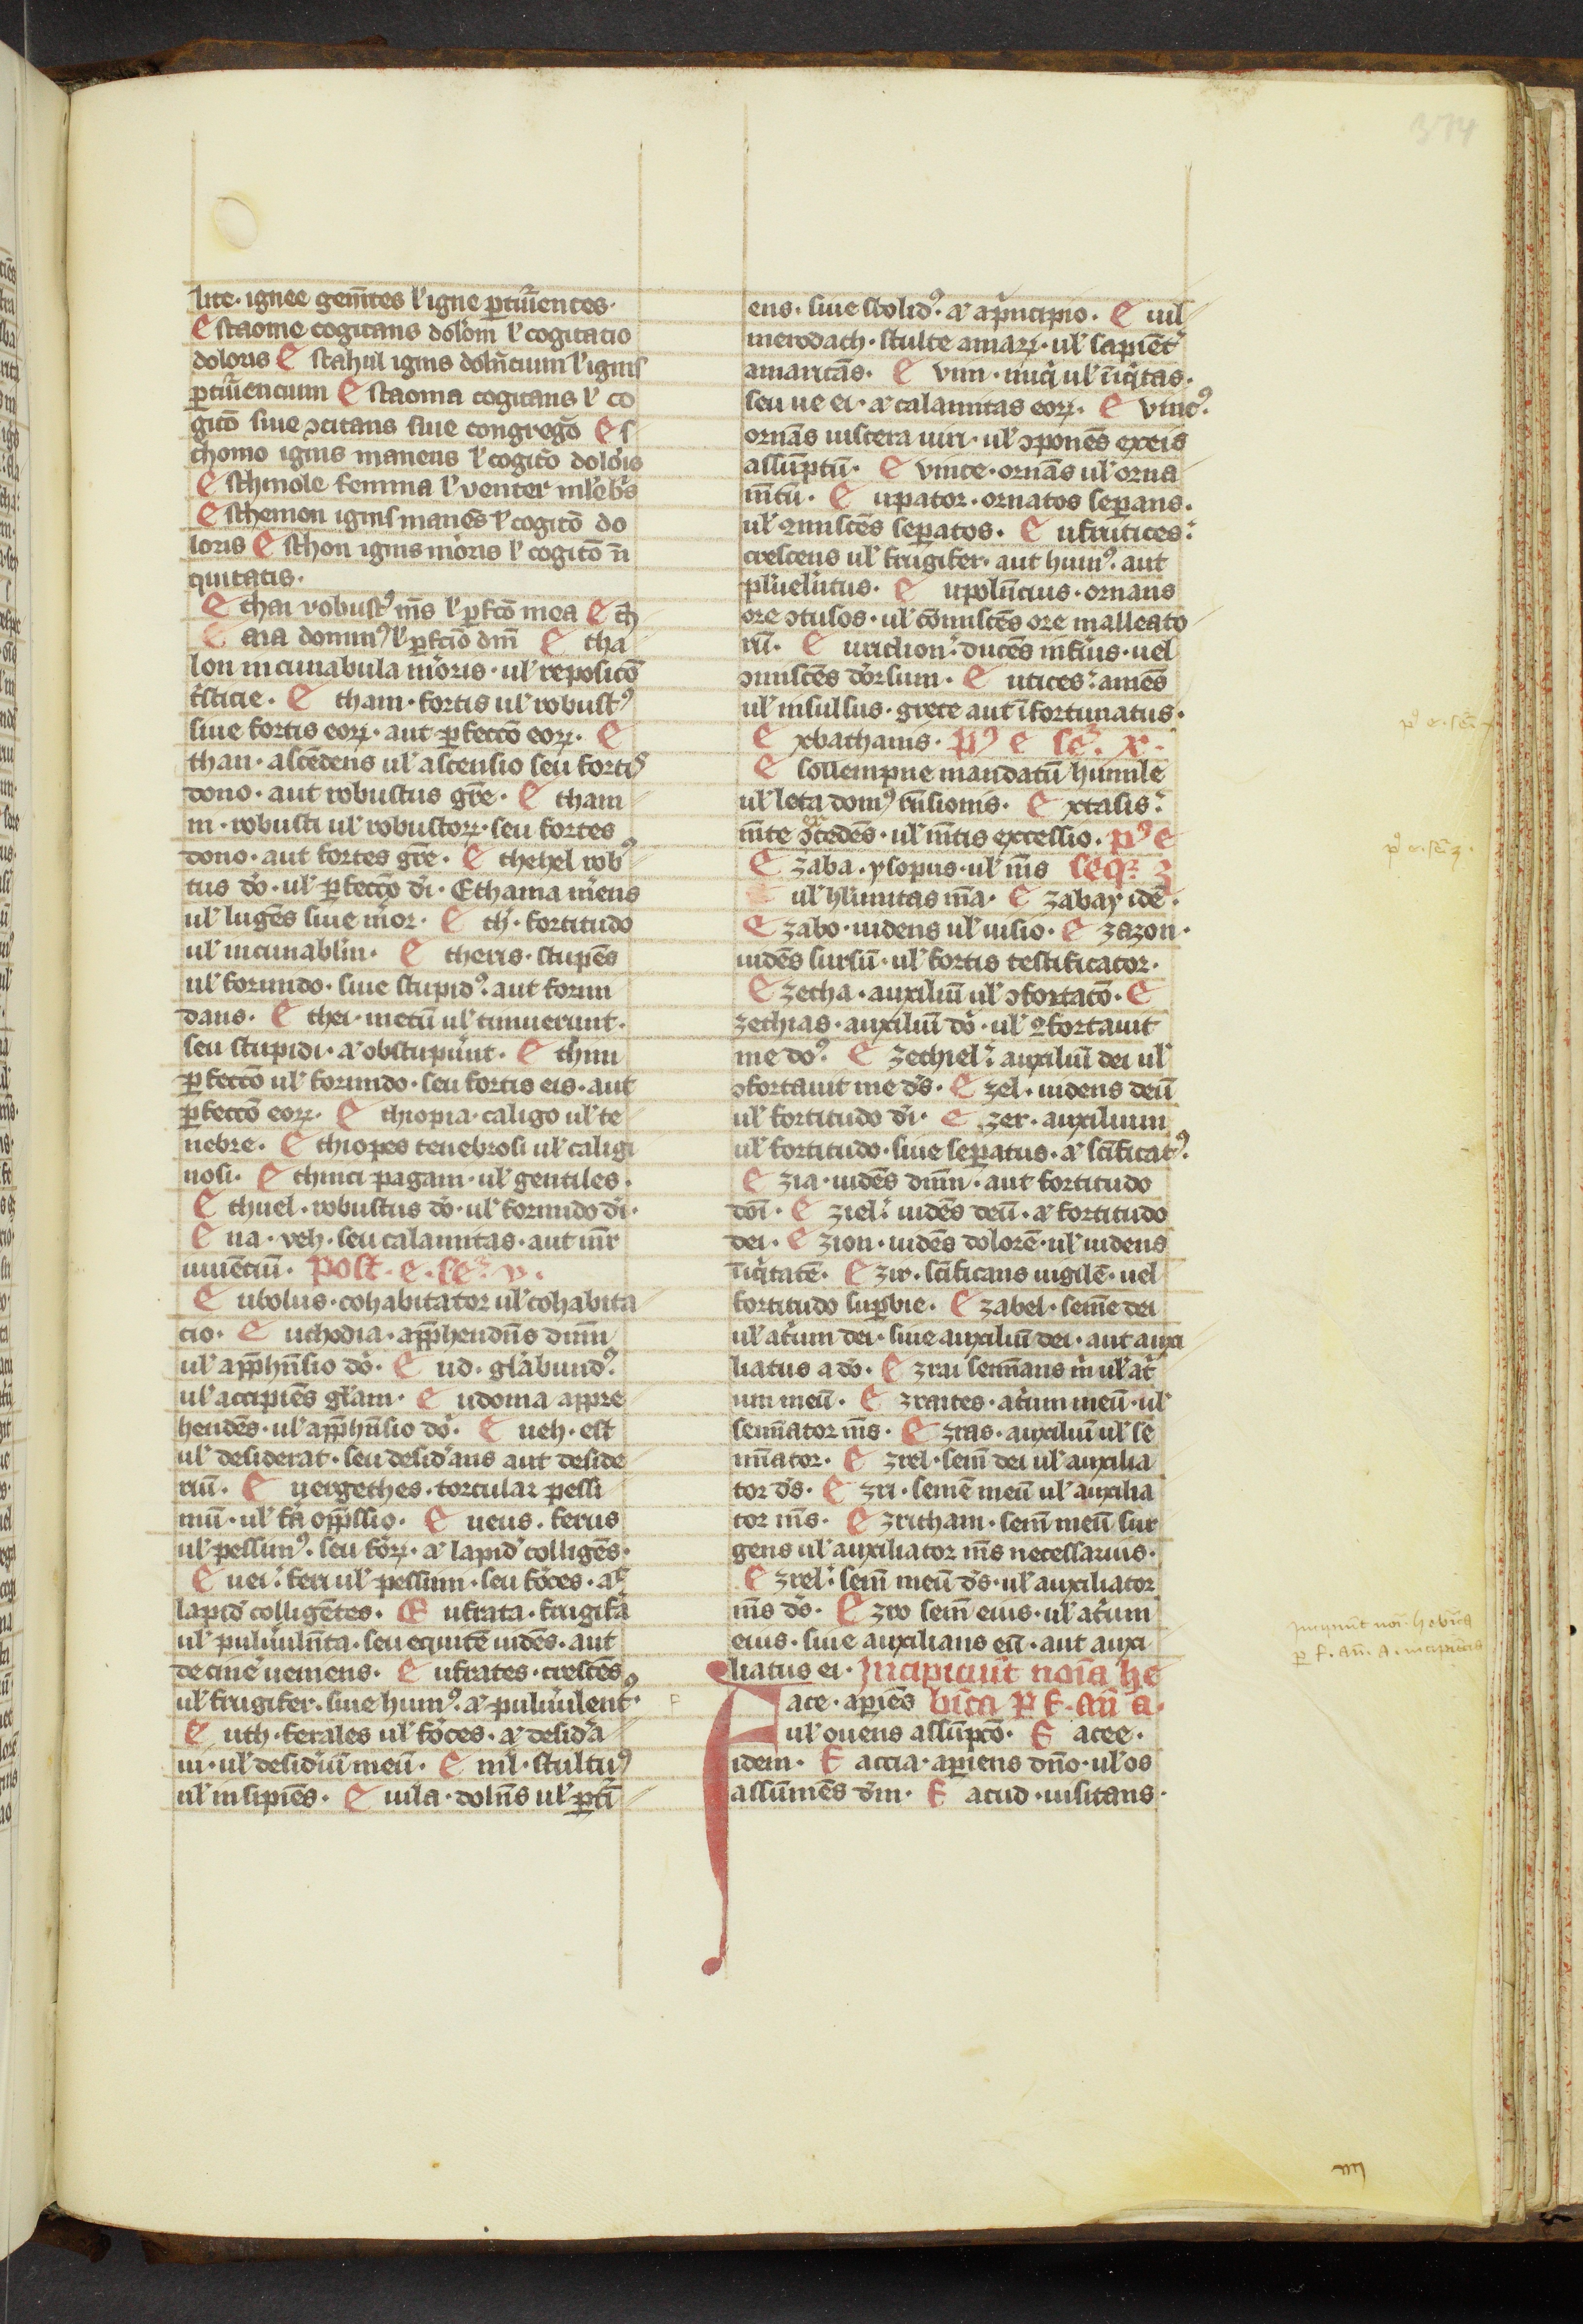 374
lite· ignee gem̄tes l' igne ꝑtur̄ientes·
E staome cogitans dolōrm l' cogitacio
doloris E stahul ignis doln̄cium l' ignis
ꝑtur̄iencium E staoma cogitans l' co
gitō siue ɔcitans siue congregō E s
chomo ignis manens l' cogitō dolōis
E sthmole femina l' venter ml'ebris
E sthemon ignis manēs l' cogitō do
loris E sthon ignis mēroris l' cogitō in̄
quitatis·
E thai robust⁹ m̄s l' ꝑfcō mea E th
E aia domin⁹ l' ꝑfctō dn̄i E tha
lon incunabula mēroris· ul' reposicō
tsticie· E tham· fortis ul' robust⁹
siue fortis eoꝝ· aut ꝑfeccō eoꝝ· E
than· ascēdens ul' ascensio seu fortis
dono· aut robustus gr̄e· E tham
m· robusti ul' robustoꝝ· seu fortes
dono· aut fortes gr̄e· E thehel rob⁹
tus dō· ul' ꝑfeccō dī· Ethama m̄ens
ul' lugēs siue m̄ror· E th· fortitudo
ul' incunablm̄· E theris· stupēs
ul' formido· siue stupid⁹· aut formi
dans· E thei· metū ul' timuerunt·
seu stupidi· ⁊ obstupūnt· E thim
ꝑfeccō ul' formido· seu fortis eis· aut
ꝑfeccō eoꝝ· E thiopia· caligo ul' te
nebre· E thiopes tenebrosi ul' caligi
nosi· E thinci pagani· ul' gentiles·
E thuel· robustus dō· ul' formido dī·
E ua· veh· seu calamitas· aut mr̄
uiuēciū· Post· e· se⁊· v·
E ubolus· cohabitator ul' cohabita
cio· E uthodia· apph̄endn̄s dn̄m
ul' apph̄n̄sio dō· E ud· glābund⁹·
ul' accipiēs glām· E udoma appre
hendēs· ul' apph̄n̄sio dō· E ueh· est
ul' desiderat· seu desid'ans aut deside
riū· E uergethes· torcular pessi
mū· ul' fa opp̄ssio· E ueus· ferus
ul' pessim⁹· seu foꝝ· ⁊ lapid' colligēs·
E uei· feri ul' pessimi· seu fōces· ⁊
lapid' colligētes· E ufrata· frugifa
ul' puluūln̄ta· seu equitē uidēs· aut
de cinē ueniens· E ufrates· crescēs
ul' frugifer· siue hum⁹· ⁊ puluūlent⁹·
E uth· ferales ul' fōces· ⁊ desid'a
ui· ul' desid'iū meū· E uil· stultus
ul' insipiēs· E uila· doln̄s ul' ꝑtī
ens· siue stolid⁹· ⁊ a pncipio· E uil
merodach· stulte amaꝝ· ul' sapient'
amaricās· E vim· iniq̄ ul' iniq̄tas·
seu ue ei· ⁊ calamitas eoꝝ· E vinc⁹·
ornās uiscera uiri· ul' ɔponēs ex eis
assūptū· E vince· ornās ul' orna
m̄tū· E upator· ornatos separans·
ul' ꝯmiscēs seꝑatos· E ufrutices·
crescens ul' frugifer· aut hum⁹· aut
pluelutus· E upolūcius· ornans
ore ɔtusos· ul' cōmiscēs ore malleato
rū· E uriclion· ducēs infius· uel
ɔmiscēs dōrsum· E utices· amēs
ul' insulsus· grece aut ifortunatus·
E xbathanis· p⁹ e se⁊· x·
E sollempne mandatū humile
ul' leta dom⁹ fusionis· E xtasis·
m̄te excedēs· ul' m̄tis excessio· p⁹ e
E zaba· ysopus· ul' m̄s seq⁊ z
ul' h'līmitas m̄a· E zabay idē·
E zabo· uidens ul' uisio· E zazon·
uidēs sursū· ul' fortis testificator·
E zecha· auxiliū ul' ɔfortatō· E
zechias· auxiliū dō· ul' ꝯfortauit
me do⁹· E zechiel· auxiliū dei ul'
ɔfortauit me ds· E zel· uidens deū
ul' fortitudo dī· E zer· auxilium
ul' fortitudo· siue seꝑatus· ⁊ scīficat⁹·
E zia· uidēs dn̄m· aut fortitudo
dn̄i· E ziel· uidēs deū· ⁊ fortitudo
dei· E zion· uidēs dolorē· ul' uidens
iniq̄tatē· E zir· scīficans uigilē· uel
fortitudo suꝑbie· E zabel· semē dei
ul' atrium dei· siue auxiliū dei· aut auxi
liatus a dō· E zrai semīans m ul' atr
um meū· E zraites· atrium meū· ul'
semīator m̄s· E zras· auxiliū ul' se
mīator· E zrel· sem dei ul' auxilia
tor ds· E zri· semē meū ul' auxilia
tor m̄s· E zricham· sem meū sur
gens ul' auxiliator m̄s necessarius·
E zrel· sem meū ds· ul' auxiliator
m̄s ds· E zro sem eius· ul' atrium
eius· siue auxilians eū· aut auxi
liatus ei· Jncipiunt noīa he
F ace· apiēs bīca ꝑ f· an̄ a·
ul' ouens assūptō· F acee·
idem· F accia· apiens dn̄o· ul' os
assūmēs dm· F acud· uisitans·
p⁹ e· se⁊ x
p⁹ e· se⁊ z·
Jncipiunt noīa hebīca
ꝑ f· an̄· a· incipientis
F